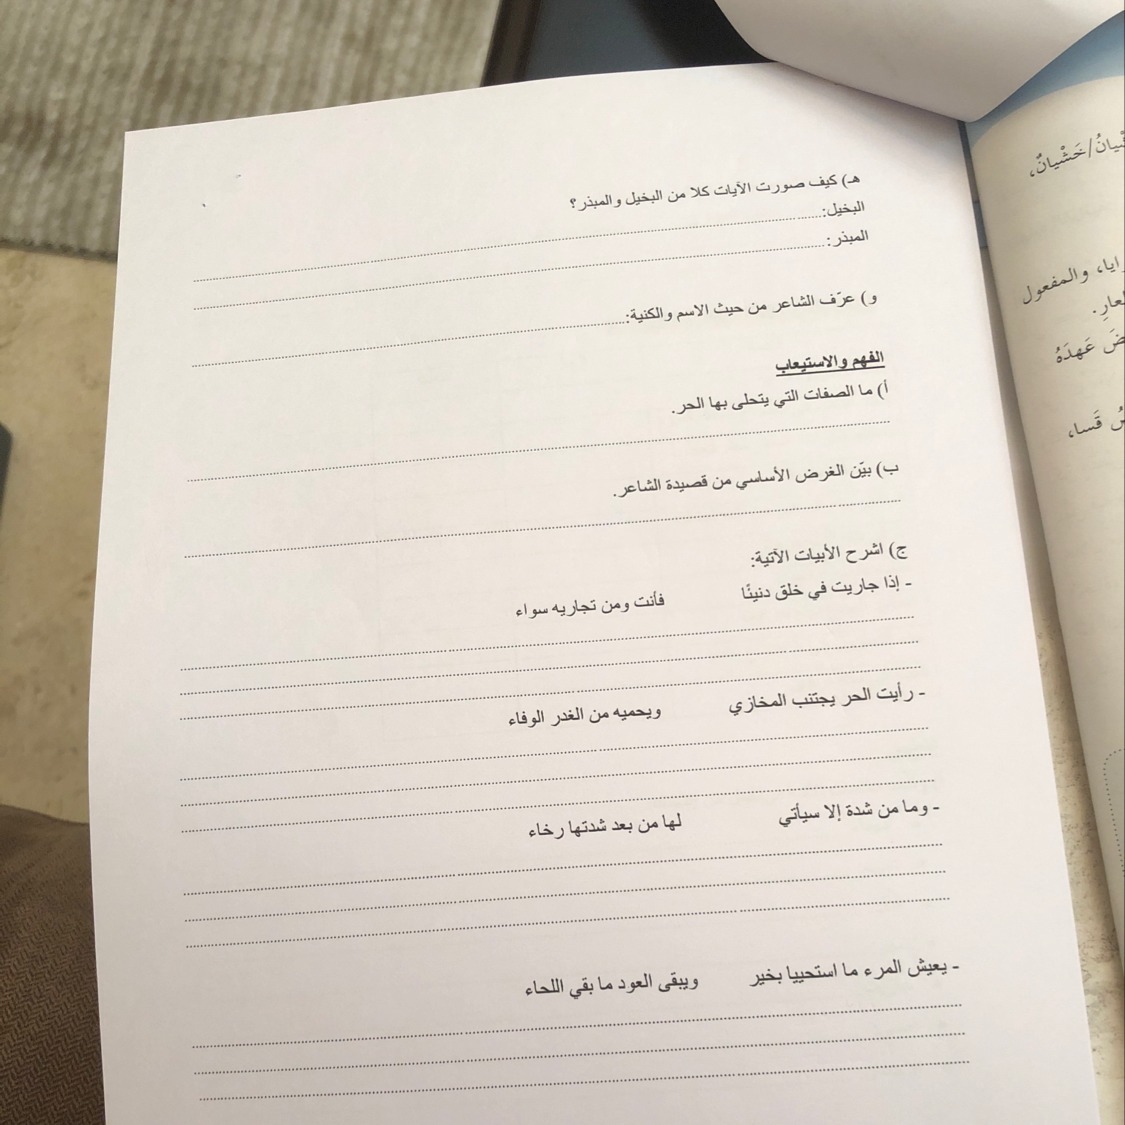 هـ) كيف صورت الآيات كلا من البخيل والمبذر؟
البخيل:
المبذر:
و) عرّف الشاعر من حيث الاسم والكنية:
الفهم والاستيعاب
أ) ما الصفات التي يتحلى بها الحر.
ب) بيّن الغرض الأساسي من قصيدة الشاعر.
ج) اشرح الأبيات الآتية:
- إذا جاريت في خلق دنيئًا فأنت ومن تجاريه سواء
- رأيت الحر يجتنب المخازي ويحميه من الغدر الوفاء
- وما من شدة إلا سيأتي لها من بعد شدتها رخاء
- يعيش المرء ما استحييا بخير ويبقى العود ما بقي اللحاء
خَشْيانٌ،
والمفعول
عَهدَهُ
قَسا،